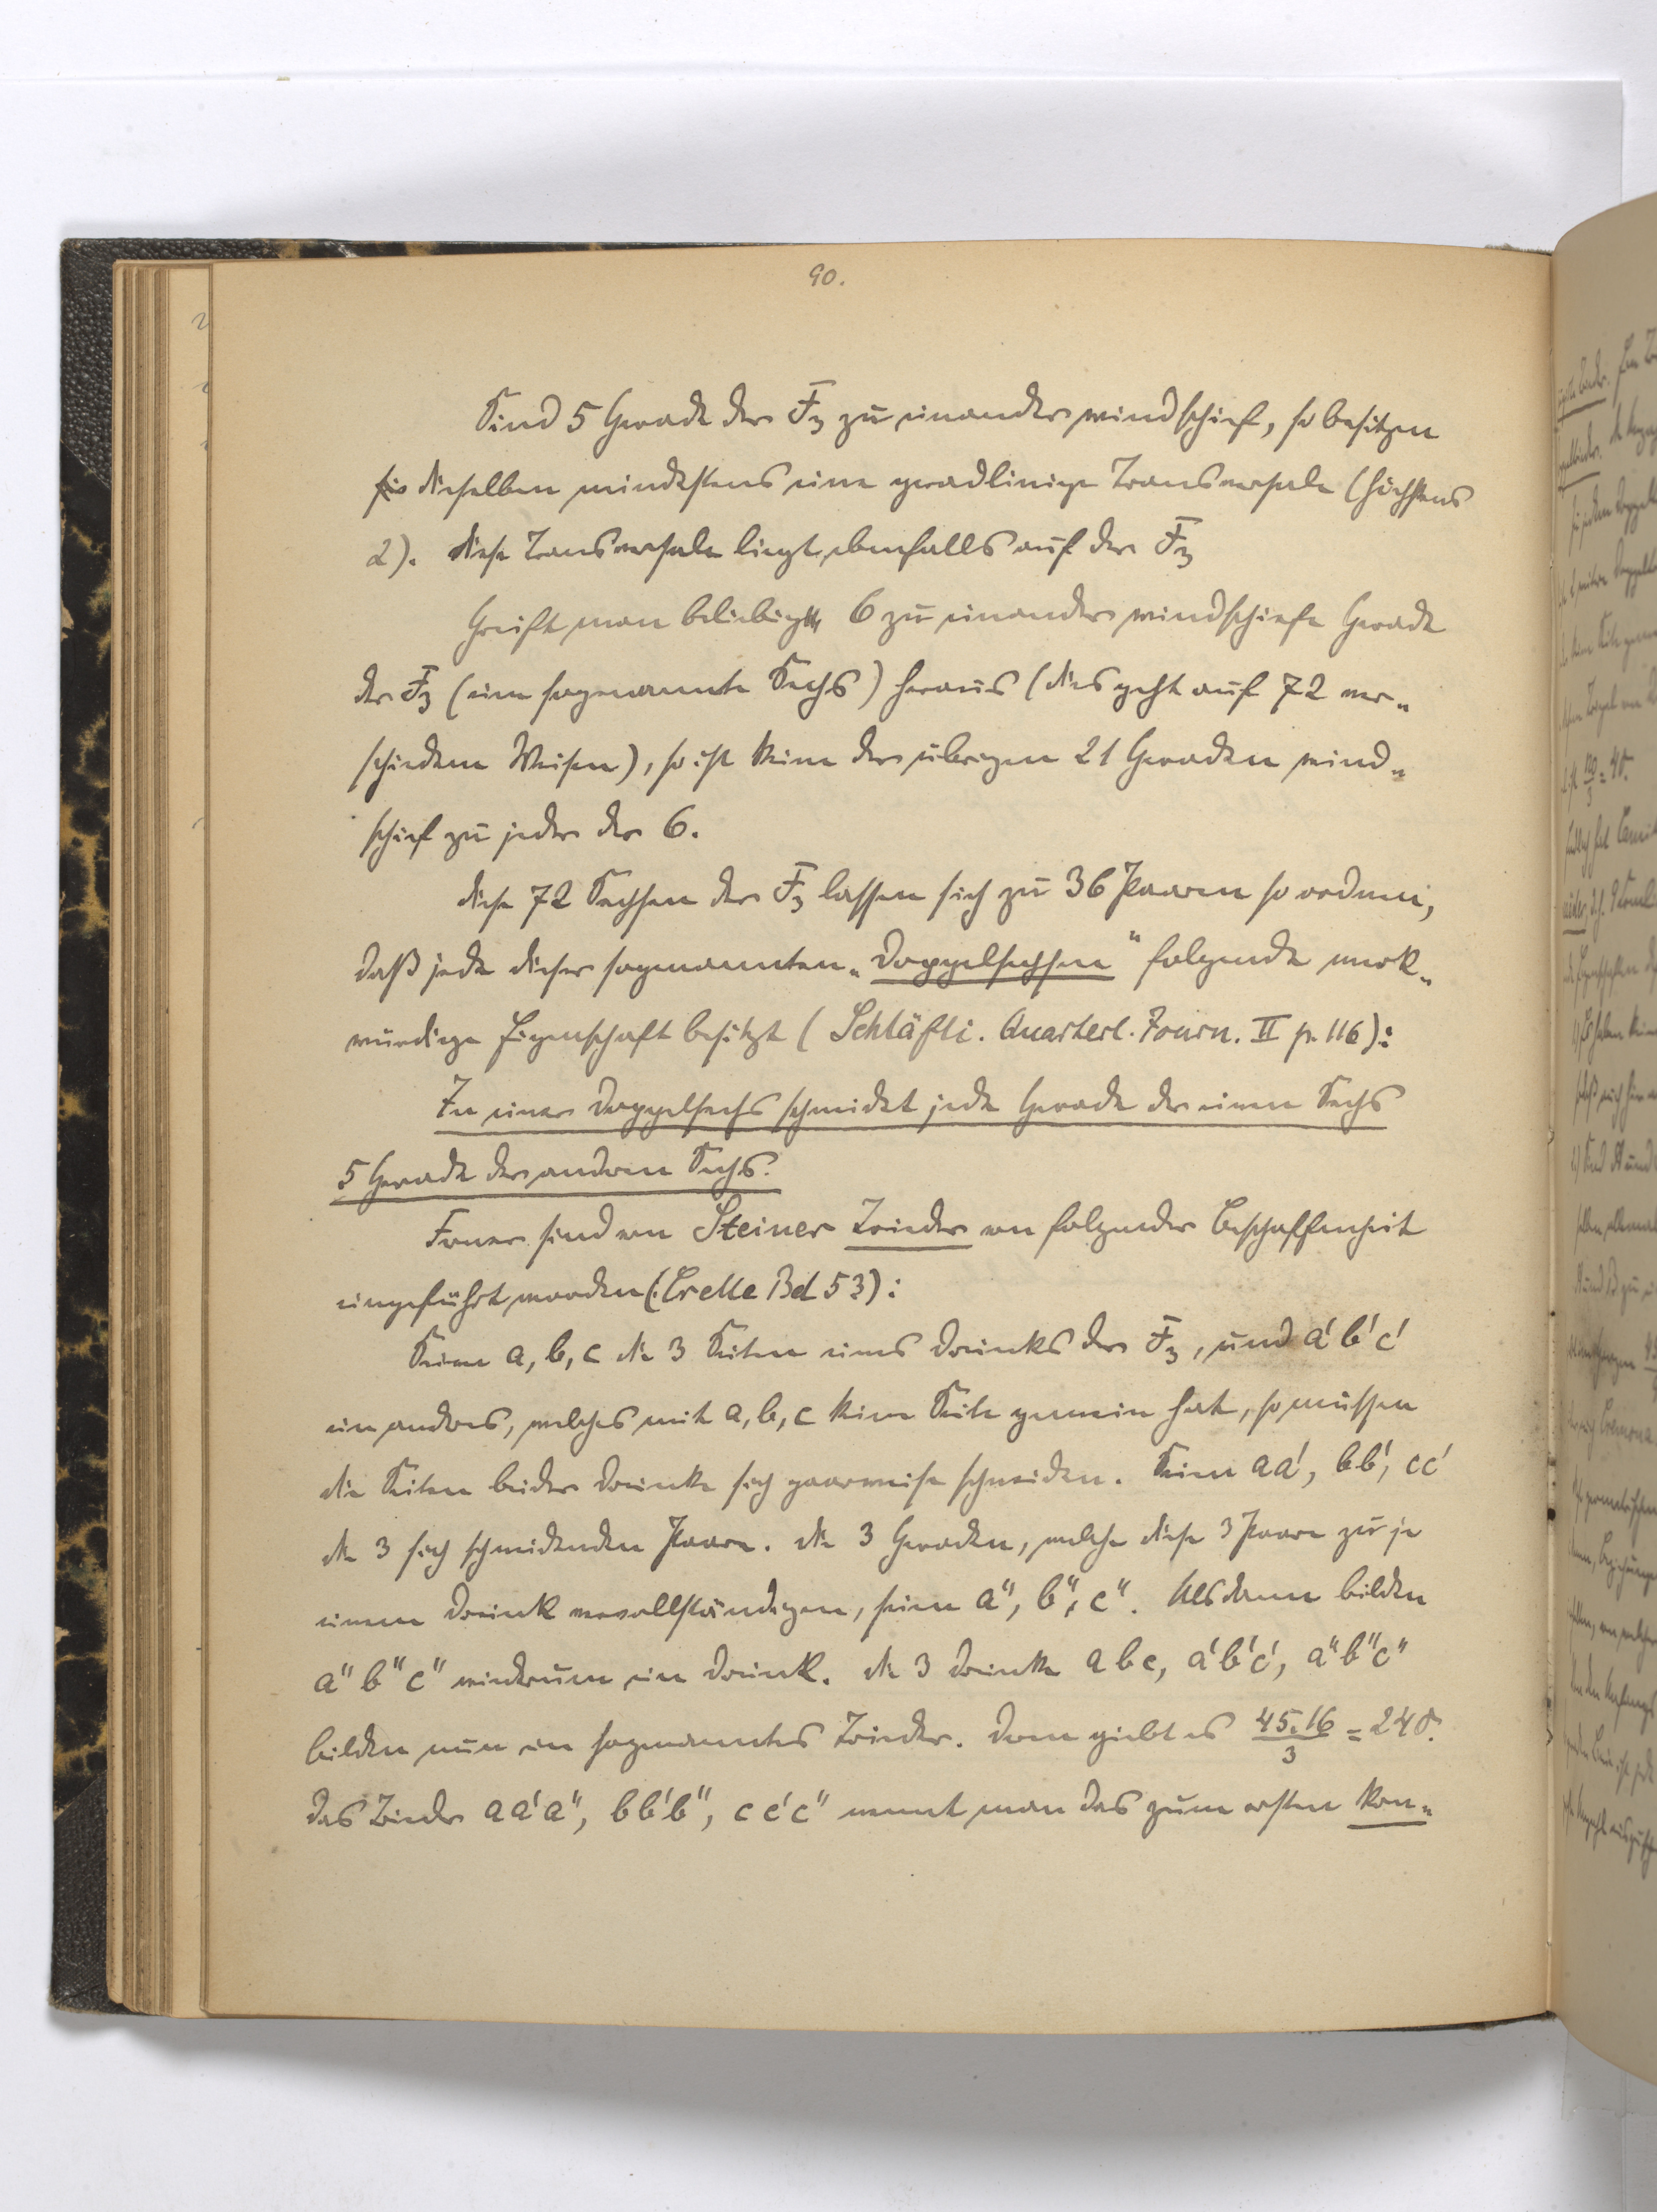 90.
Sind 5 Gerade der F₃ zu einander windschief, so besitzen
dieselben mindestens eine geradlinige Transversale (höchstens
2). Diese Transversale liegt ebenfalls auf der F₃
Greift man beliebig 6 zu einander windschiefe Gerade
der F₃ (eine sogenannte Sechs) heraus (dies geht auf 72 ver„
schiedene Weisen), so ist keine der übrigen 21 Geraden wind„
schief zu jeder der 6.
Diese 72 Sechsen der F₃ lassen sich zu 36 Paaren so ordnen,
daß jede dieser sogenannten „Doppelsechsen“ folgende merk„
würdige Eigenschaft besitzt (Schläfli. Quarterl. Journ. II p. 116):
In einer Doppelsechs schneidet jede Gerade der einen Sechs
5 Gerade der andren Sechs.
Ferner sind von Steiner Trieder von folgender Beschaffenheit
eingeführt worden (: Crelle Bd 53):
Seien a, b, c die 3 Seiten eines Dreiecks der F₃, und a' b' c'
ein andres, welches mit a, b, c keine Seite gemein hat, so müssen
die Seiten beider Dreiecke sich paarweise schneiden. Seien aa', bb', cc'
die 3 sich schneidenden Paare. Die 3 Geraden, welche diese 3 Paare zu je
einem Dreieck vervollständigen, seien a", b", c". Alsdann bilden
a" b" c" wiederum ein Dreieck. Die 3 Dreiecke abc, a'b'c', a"b"c"
bilden nun ein sogenanntes Trieder. Deren giebt es 45.16/3 = 240.
Das Trieder aa'a", bb'b", cc'c" nennt man das zum ersten kon„